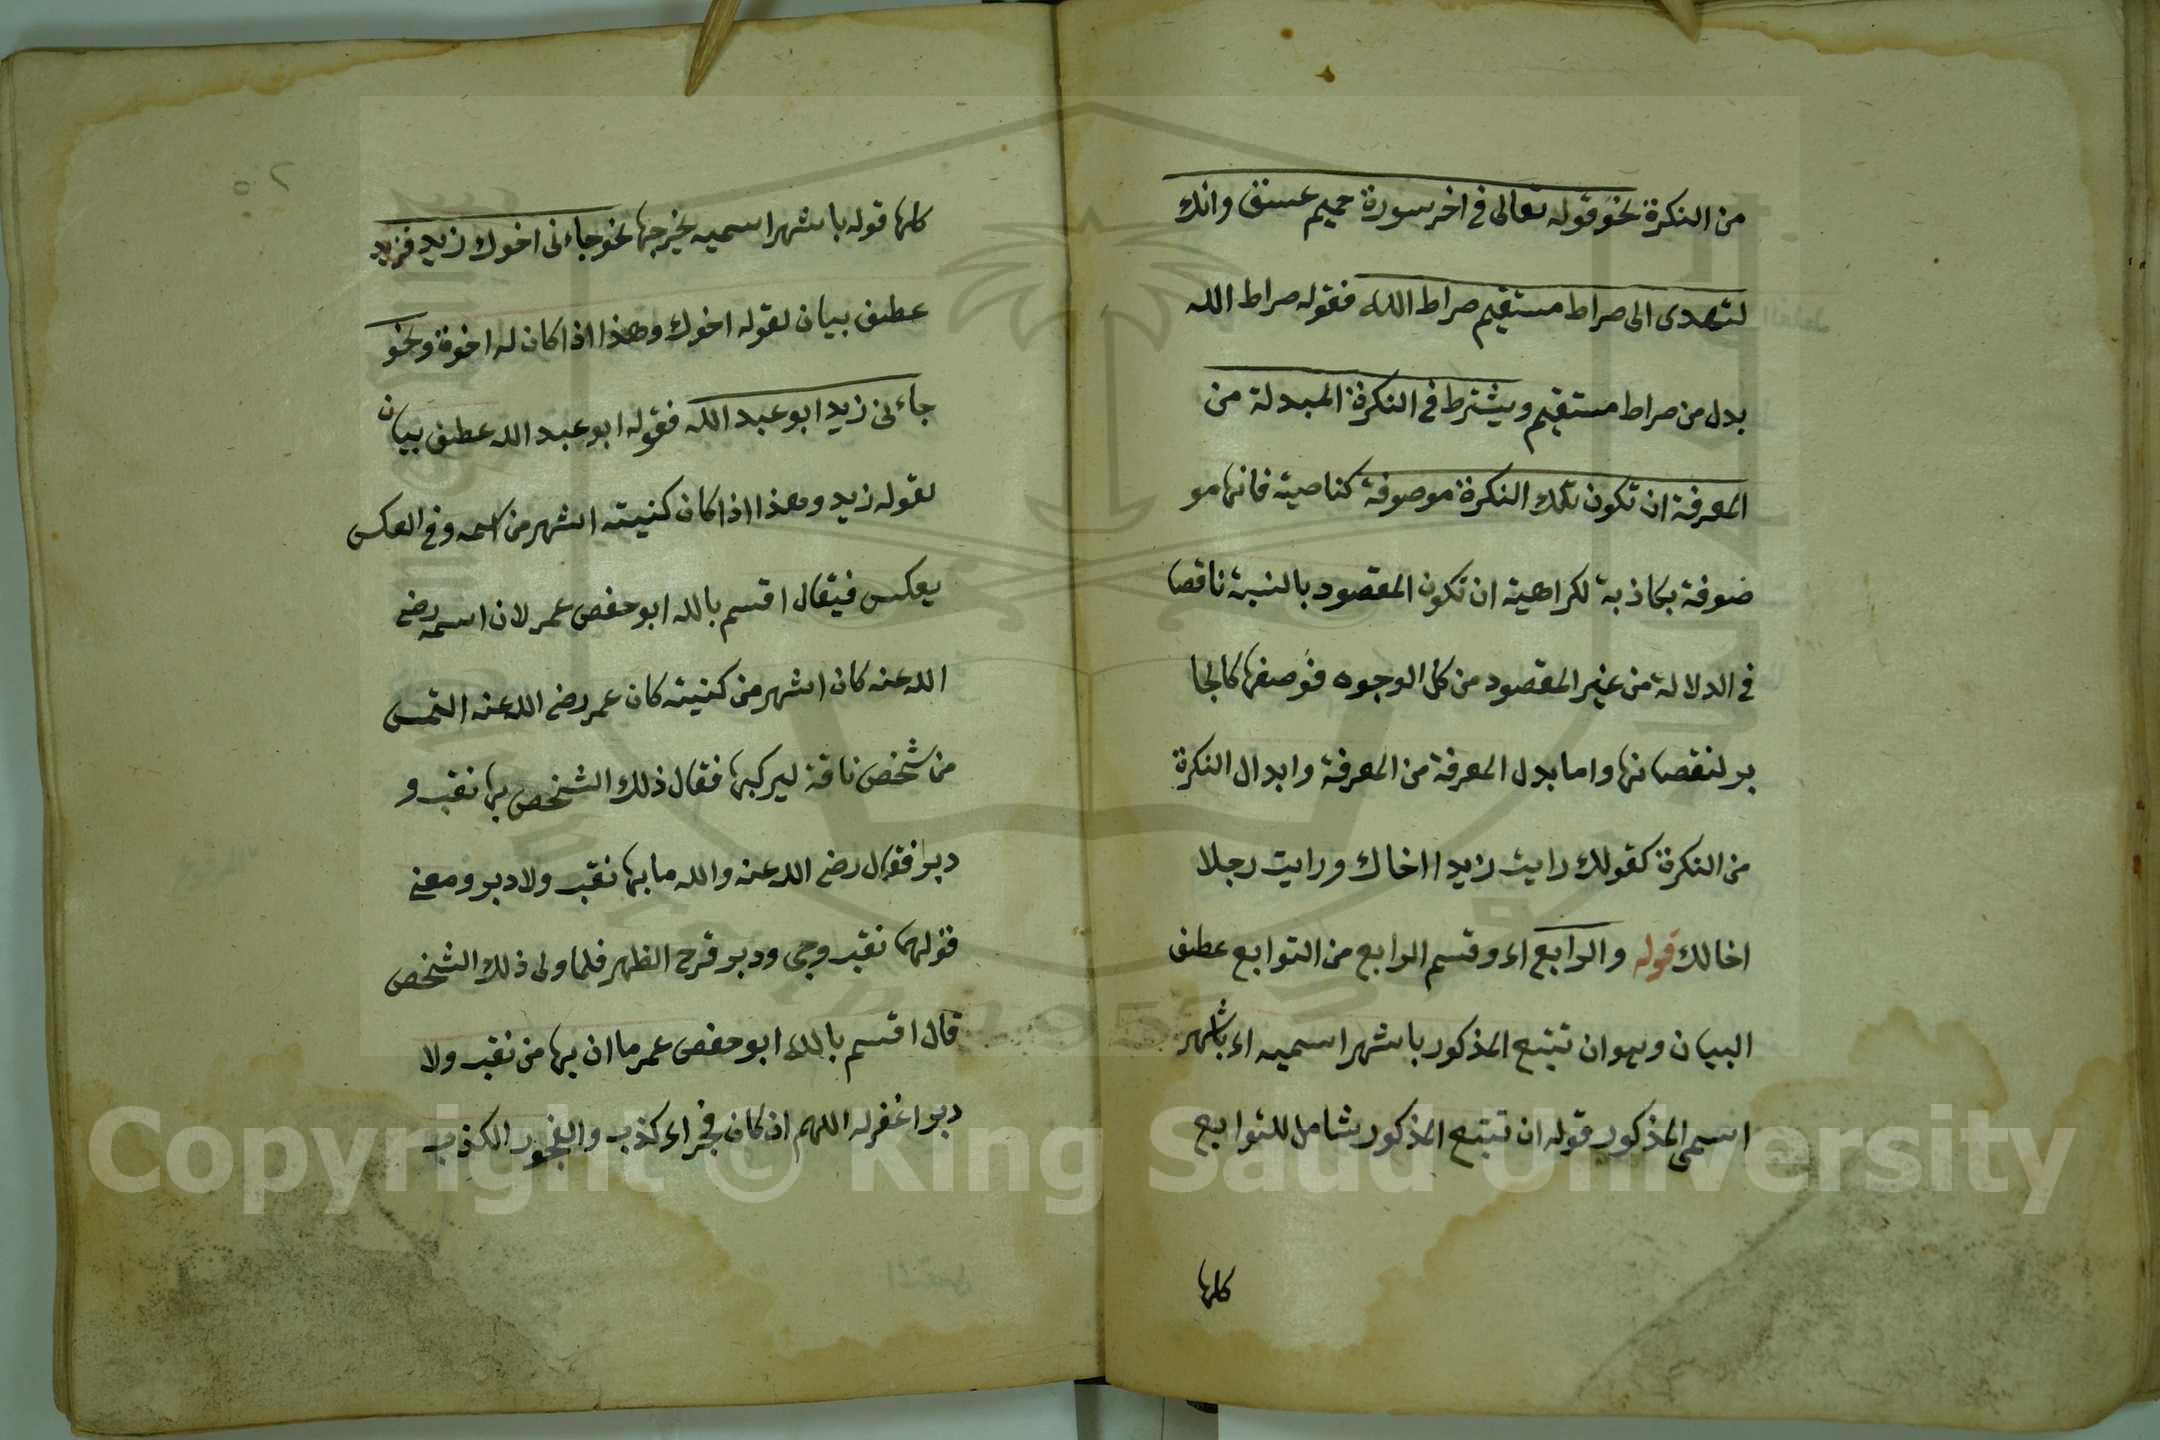 من النكرة نحو قوله تعالى في اخر سورة حميم عسق وانك
لتهدى الى صراط مستقيم صراط الله فقوله صراط الله
بدل من صراط مستقيم ويشترط في النكرة المبدلة من
المعرفة ان تكون تلك النكرة موصوفة كناصية فانها مو
صوفة بكاذبة لكراهية ان تكون المقصود بالنسبة ناقصا
في الدلالة من غير المقصود من كل الوجوه فوصفها كالجا
بر لنقصانها واما بدل المعرفة من المعرفة وابدال النكرة
من النكرة كقولك رايت زيدا اخاك ورايت رجلا
اخا لك قوله والرابع اى وقسم الرابع من التوابع عطف
البيان وهو ان تتبع المذكور باشهر اسميه اى باشهر
اسمى المذكور قوله ان تتبع المذكور شامل للتوابع
كلها
٥٢
كلها قوله باشهر اسميه يخرجها نحو جاءنى اخوك زيد فزيد
عطف بيان لقوله اخوك وهذا اذا كان له اخوة ونحو
جاءنى زيد ابو عبد الله فقوله ابو عبد الله عطف بيان
لقوله زيد وهذا اذا كان كنيته اشهر من اسمه وفى العكس
يعكس فيقال اقسم بالله ابو حفص عمر لان اسمه رضى
الله عنه كان اشهر من كنيته كان عمر رضى الله عنه التمس
من شخص ناقة ليركبها فقال ذلك الشخص بها نقب و
دبر فقال رضى الله عنه والله ما بها نقب ولا دبر ومعنى
قولهما نقب وجى ودبر قرح الظهر فلما ولى ذلك الشخص
قال اقسم بالله ابو حفص عمر ما ان بها من نقب ولا
دبر اغفر له اللهم ان كان فجر اى كذب والفجور الكذب
Copyright © King Saud University